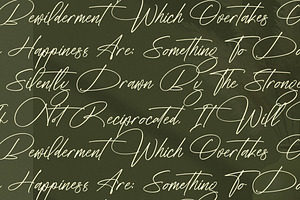 Bewilderment Which Overtakes
Happiness Are: Something To Do
Silently Drawn By The Stronge
Not Reciprocated, It Will
Bewilderment Which Overtakes
Happiness Are: Something To Do